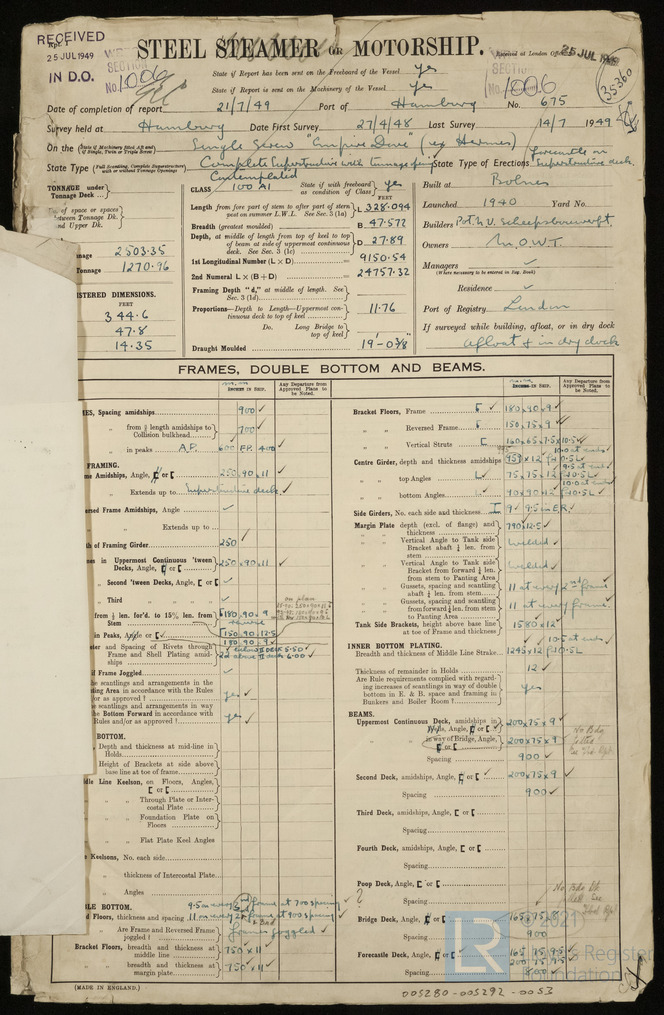 RECEIVED
25 JUL 1949
IN D.O.
STEEL STEAMER OR MOTORSHIP.
Received at London Office
25 JUL 1949
No. 1006
35360
State if Report has been sent on the Freeboard of the Vessel yes
State if Report is sent on the Machinery of the Vessel yes
Date of completion of report 21/7/49 Port of Hamburg No. 675
Survey held at Hamburg Date First Survey 27/4/48 Last Survey 14/7 1949
On the (State if Machinery fitted Aft and if Single, Twin or Triple Screw) Single Screw "Empire Dove" (ex Hermes)
State Type (Full Scantling, Complete Superstructure with or without Tonnage Openings) Complete Superstructure with tonnage State Type of Erections Forecastle on Superstructure deck.
Contemplated
TONNAGE under Tonnage Deck
of space or spaces between Tonnage Dk. and Upper Dk.
2503.35
Tonnage 1270.96
REGISTERED DIMENSIONS.
FEET
344.6
47.8
14.35
CLASS 100 A1 State if with freeboard as condition of Class yes
FEET
Length from fore part of stem to after part of stern post on summer L.W.L. See Sec. 3 (1a) L 328.094
Breadth (greatest moulded) B 47.572
Depth, at middle of length from top of keel to top of beam at side of uppermost continuous deck. See Sec. 3 (1c) D 27.89
1st Longitudinal Number (L × D) 9150.54
2nd Numeral L × (B + D) 24757.32
Framing Depth "d," at middle of length. See Sec. 3 (1d)
Proportions—Depth to Length—Uppermost continuous deck to top of keel 11.76
Do. Long Bridge to top of keel
Draught Moulded 19'-0 3/8"
Built at Bolnes
Launched 1940 Yard No.
Builders
Owners M.O.W.T.
Managers
(Where necessary to be entered in Reg. Book)
Residence
Port of Registry London
If surveyed while building, afloat, or in dry dock
afloat & in dry dock
FRAMES, DOUBLE BOTTOM AND BEAMS.
INCHES IN SHIP.
Any Departure from Approved Plans to be Noted.
FRAMES, Spacing amidships 900
from ⅕ length amidships to Collision bulkhead 700
in peaks A.P. 600 F.P. 400
FRAMING.
Frame Amidships, Angle, or 250.90.11
Extends up to Superstructure deck
Reversed Frame Amidships, Angle
Extends up to
Depth of Framing Girder 250
Frames in Uppermost Continuous 'tween Decks, Angle, or 250×90×11
Second 'tween Decks, Angle, or
Third
from ⅕ len. for'd. to 15% len. from Stem 180.90.9
in Peaks, Angle or 150.90.12.5
150.90.9
Diameter and Spacing of Rivets through Frame and Shell Plating amidships
If Frame Joggled
yes
Bottom Forward in accordance with Rules and/or as approved? yes
BOTTOM.
Depth and thickness at mid-line in Holds
Height of Brackets at side above base line at toe of frame
Middle Line Keelson, on Floors, Angles, or
Through Plate or Intercostal Plate
Foundation Plate on Floors
Flat Plate Keel Angles
Keelsons, No. each side
thickness of Intercostal Plate
Angles
DOUBLE BOTTOM.
Solid Floors, thickness and spacing
Are Frame and Reversed Frame joggled? frames joggled
Bracket Floors, breadth and thickness at middle line 750×11
breadth and thickness at margin plate 750×11
Bracket Floors, Frame 180×90×9
Reversed Frame 150×75×9
Vertical Struts 160×65×7.5×10.5
Centre Girder, depth and thickness amidships 959×12
top Angles 75×75×12
bottom Angles 90×90×12
Side Girders, No. each side and thickness 9 9.5 in E.R.
Margin Plate depth (excl. of flange) and thickness 790×12.5
Vertical Angle to Tank side Bracket abaft ¼ len. from stem welded
Vertical Angle to Tank side Bracket from forward ¼ len. from stem to Panting Area welded
Gussets, spacing and scantling abaft ¼ len. from stem 11 at every 2nd frame
Gussets, spacing and scantling from forward ¼ len. from stem to Panting Area 11 at every frame
Tank Side Brackets, height above base line at toe of Frame and thickness 1580×12
INNER BOTTOM PLATING.
Breadth and thickness of Middle Line Strake 1245×12
Thickness of remainder in Holds 12
Are Rule requirements complied with regarding increases of scantlings in way of double bottom in E. & B. space and framing in Bunkers and Boiler Room? yes
BEAMS.
Uppermost Continuous Deck, amidships in Holds, Angle, or 200×75×9
in way of Bridge, Angle, or 200×75×9
Spacing 900
Second Deck, amidships, Angle, or 200×75×9
Spacing 900
Third Deck, amidships, Angle, or
Spacing
Fourth Deck, amidships, Angle, or
Spacing
Poop Deck, Angle, or
Spacing
Bridge Deck, Angle, or 165×75×8
Spacing 900
Forecastle Deck, Angle, or 165×75×9.5
200×75×9.5
Spacing
(MADE IN ENGLAND.)
005280-005292-0053
LR
© 2021
Lloyd's Register
Foundation